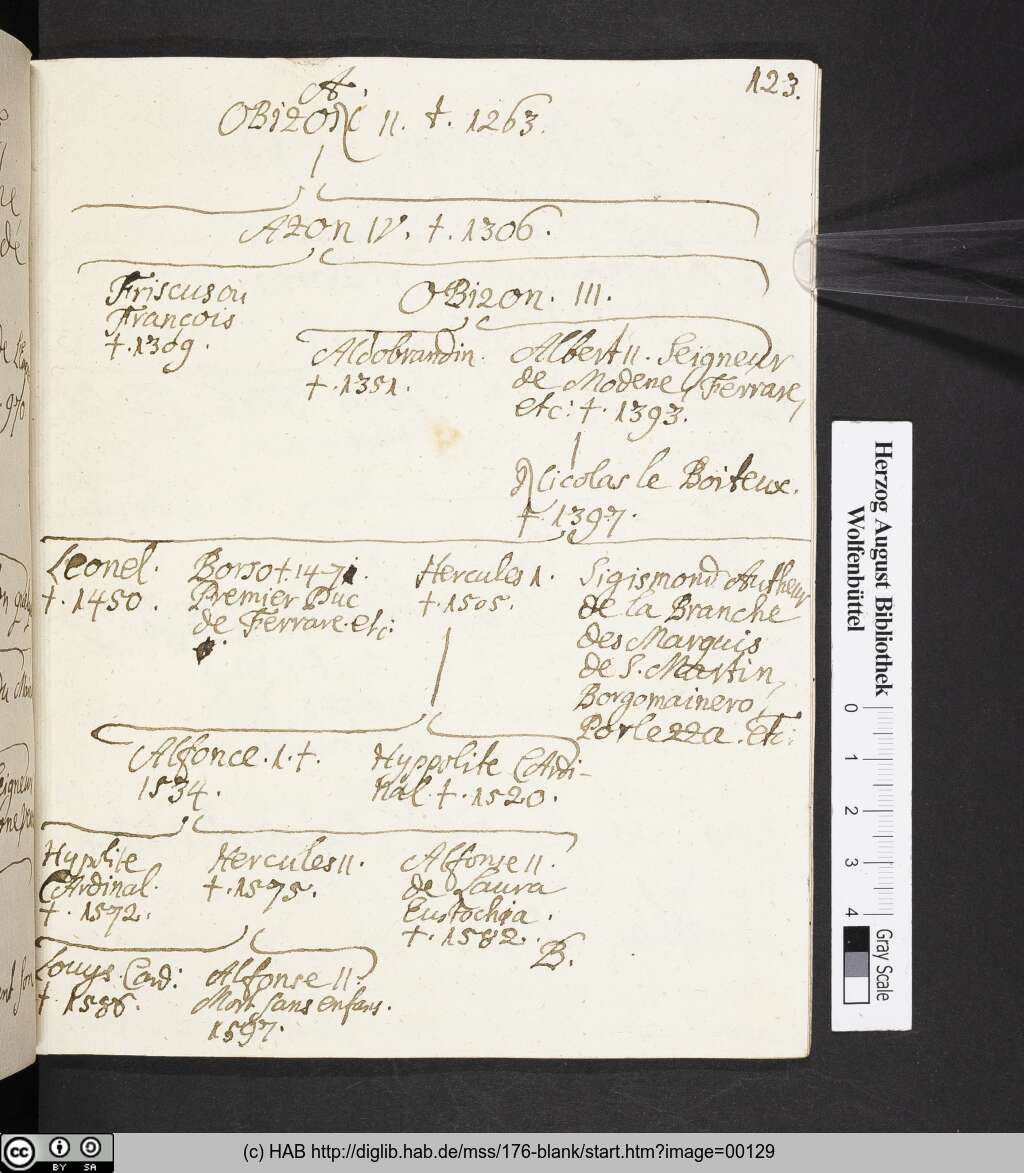 123.
A.
OBizon II. †. 1263.
Azon IV. †. 1306.
Friscus ou
François
†. 1309.
OBizon. III.
Aldobrandin.
†. 1351.
Albert II. Seigneur
de Modene, Ferrare,
etc: †. 1393.
Nicolas le Boiteux.
†. 1397.
Leonel.
†. 1450.
Borso †. 1471.
Premier Duc
de Ferrare. etc:
Hercules 1.
†. 1505.
Sigismond Autheur
de la Branche
des Marquis
de S. Martin,
Borgomainero,
Porlezza. Etc:
Alfonce. 1. †.
1534.
Hyppolite CArdi-
nal. †. 1520.
Hypolite
CArdinal.
†. 1572.
Hercules II.
†. 1575.
Alfonse II.
de Laura
Eustochia.
†. 1582.
B.
Louys. Card:
†. 1586.
Alfonse II.
Mort sans enfans.
1597.
Herzog August Bibliothek
Wolfenbüttel
0 1 2 3 4
Gray Scale
cc BY SA
(c) HAB http://diglib.hab.de/mss/176-blank/start.htm?image=00129